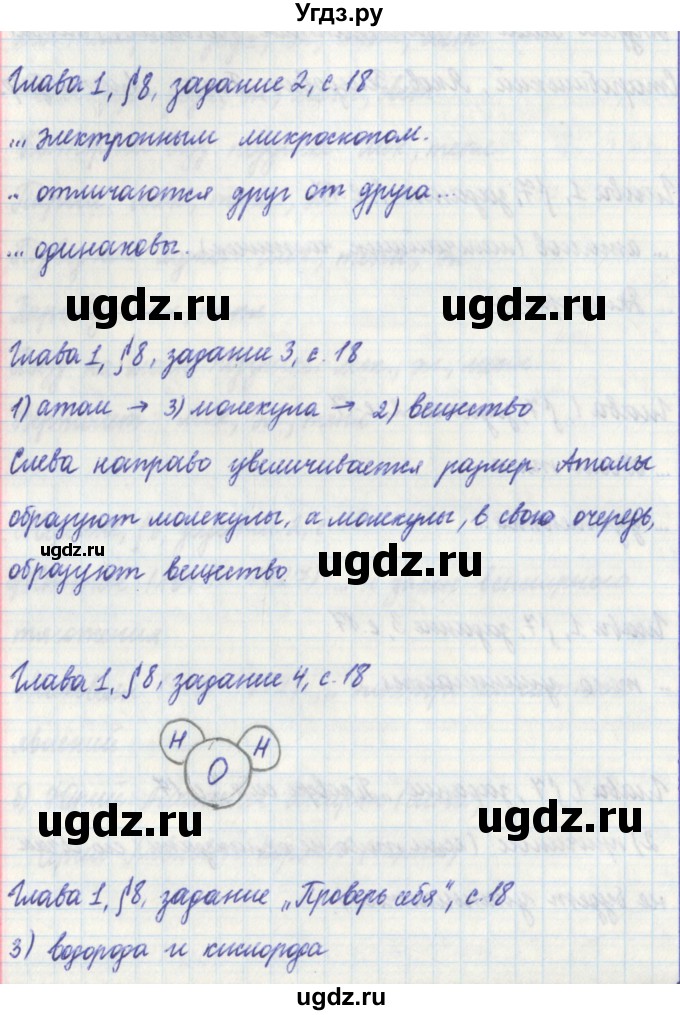 Угдз.ру
Глава 1, §8, задание 2, с. 18
... электронным микроскопом.
.. отличаются друг от друга...
... одинаковы.
ugdz.ru
ugdz.ru
Глава 1, §8, задание 3, с. 18
1) атом → 3) молекула → 2) вещество
Слева направо увеличивается размер. Атомы
образуют молекулы, а молекулы, в свою очередь,
ugdz.ru
образуют вещество
ugdz.ru
Глава 1, §8, задание 4, с. 18
H H
O
ugdz.ru
ugdz.ru
Глава 1, §8, задание „Проверь себя“, с 18
3) водорода и кислорода
ugdz.ru